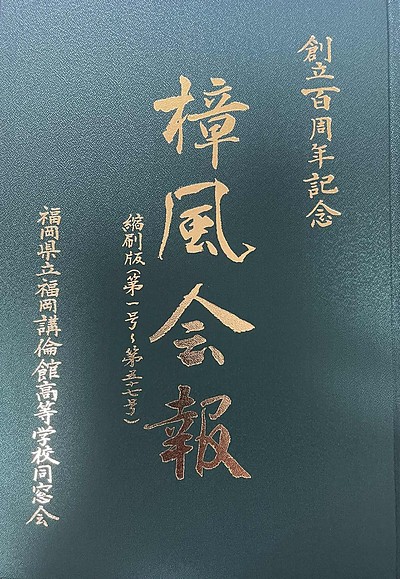 創立百周年記念
樟風会報
縮刷版(第一号~第五十七号)
福岡県立福岡講倫館高等学校同窓会